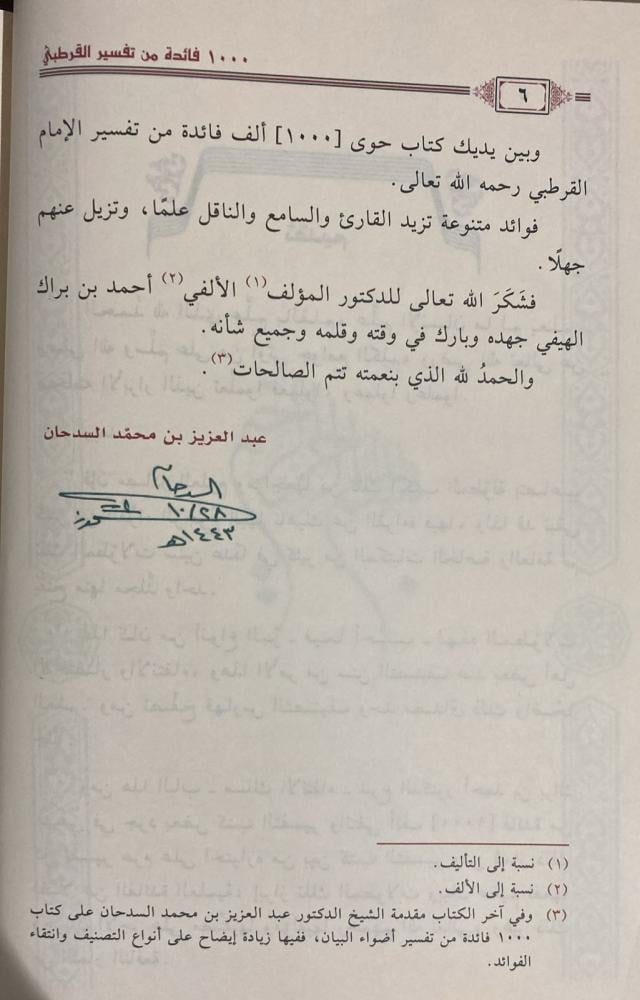 ١٠٠٠ فائدة من تفسير القرطبي
٦
وبين يديك كتاب حوى [١٠٠٠] ألف فائدة من تفسير الإمام
القرطبي رحمه الله تعالى.
فوائد متنوعة تزيد القارئ والسامع والناقل علمًا، وتزيل عنهم
جهلًا.
فشَكَرَ الله تعالى للدكتور المؤلف(١) الألفي(٢) أحمد بن براك
الهيفي جهده وبارك في وقته وقلمه وجميع شأنه.
والحمدُ لله الذي بنعمته تتم الصالحات(٣).
عبد العزيز بن محمّد السدحان
١٠/٢٨
١٤٤٣هـ
(١) نسبة إلى التأليف.
(٢) نسبة إلى الألف.
(٣) وفي آخر الكتاب مقدمة الشيخ الدكتور عبد العزيز بن محمد السدحان على كتاب
١٠٠٠ فائدة من تفسير أضواء البيان، ففيها زيادة إيضاح على أنواع التصنيف وانتقاء
الفوائد.